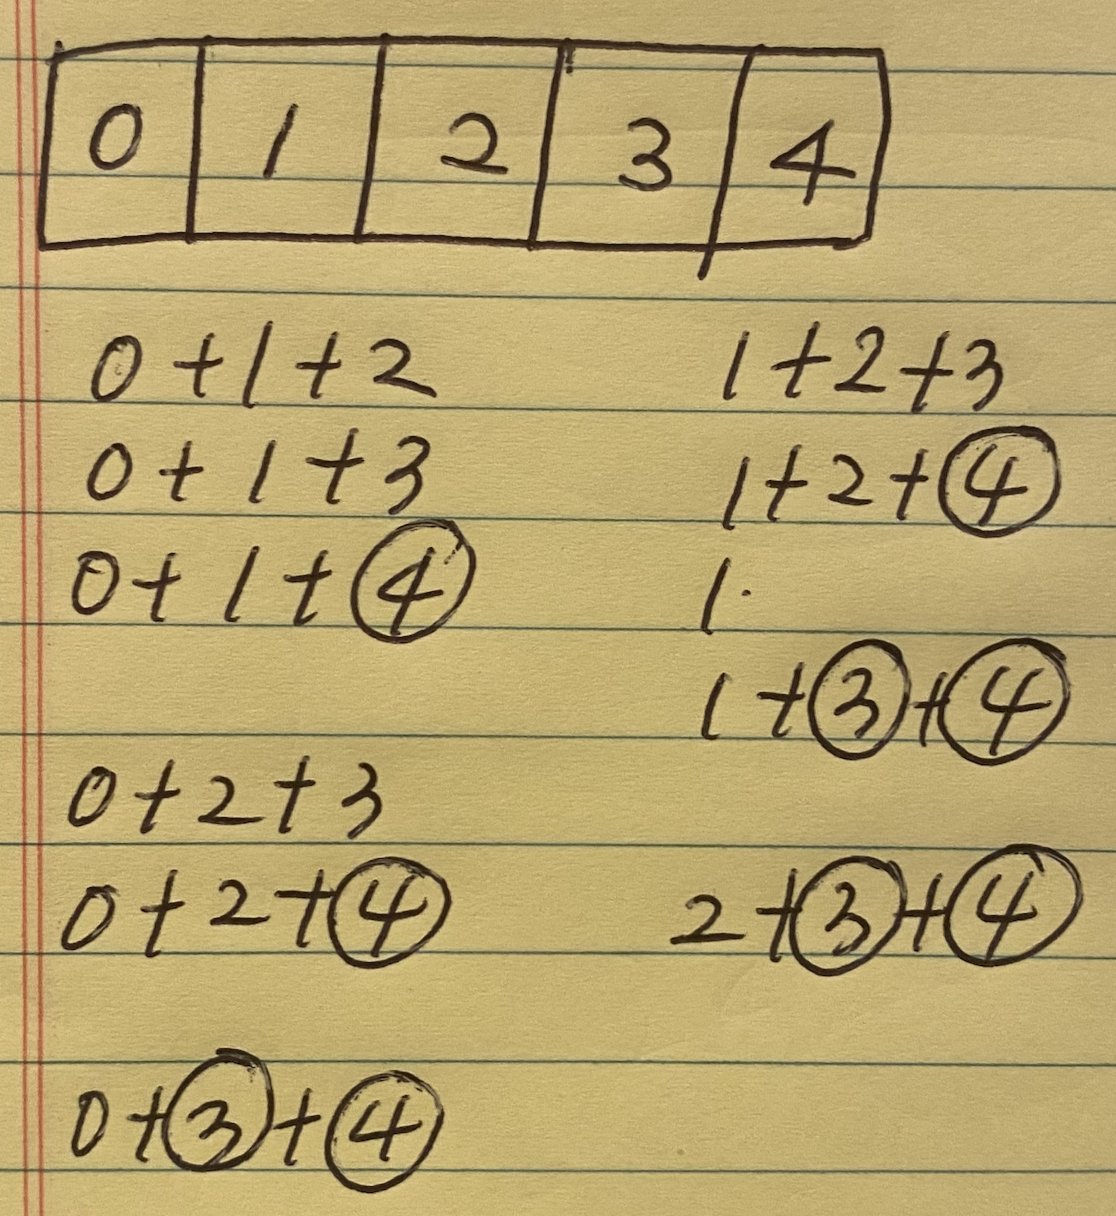 0 1 2 3 4
0+1+2
0+1+3
0+1+④
0+2+3
0+2+④
0+③+④
1+2+3
1+2+④
1.
1+③+④
2+③+④